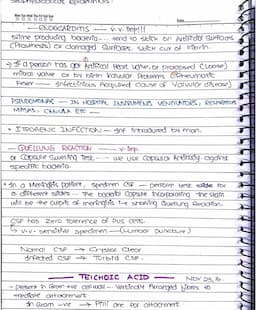 Staphylococcus Epidermidis:
Date
ENDOCARDITIS — v.v. Imp!!!
Slime producing bacteria.... tend to stick on Artificial Surfaces
(Prosthesis) or damaged surfaces such as of fibrin.
→ If a person has got Artificial Heart Valve, or prolapsed (loose)
mitral valve or by birth Valvular Problems
Fever — Infectious Acquired cause of Valvular disease)
PSEUDOMONAS — IN HOSPITAL INSTRUMENTS VENTILATORS, RESPIRATOR
MASKS, CANNULA ETC —
• ITROGENIC INFECTION — got introduced by man.
QUELLING REACTION — v. Imp.
or Capsule Swelling Test.... we use Capsular Antibody against
specific bacteria.
• In a Meningitis patient, specimen CSF — perform test slides for
on different slides — The bacterial Capsule incorporating the stain
will be the culprit of meningitis i.e. showing Quelling Reaction.
CSF has Zero Tolerence of Pus cells.
↳ v.v. sensitive specimen (Lumbar puncture)
Normal CSF → Crystal Clear
Infected CSF → Turbid CSF.
TEICHOIC ACID — Nov 03, 16
- present in Gram +ve cell wall — Vertically Arranged fibres to
mediate attachment
In Gram -ve → Pilli are for attachment.